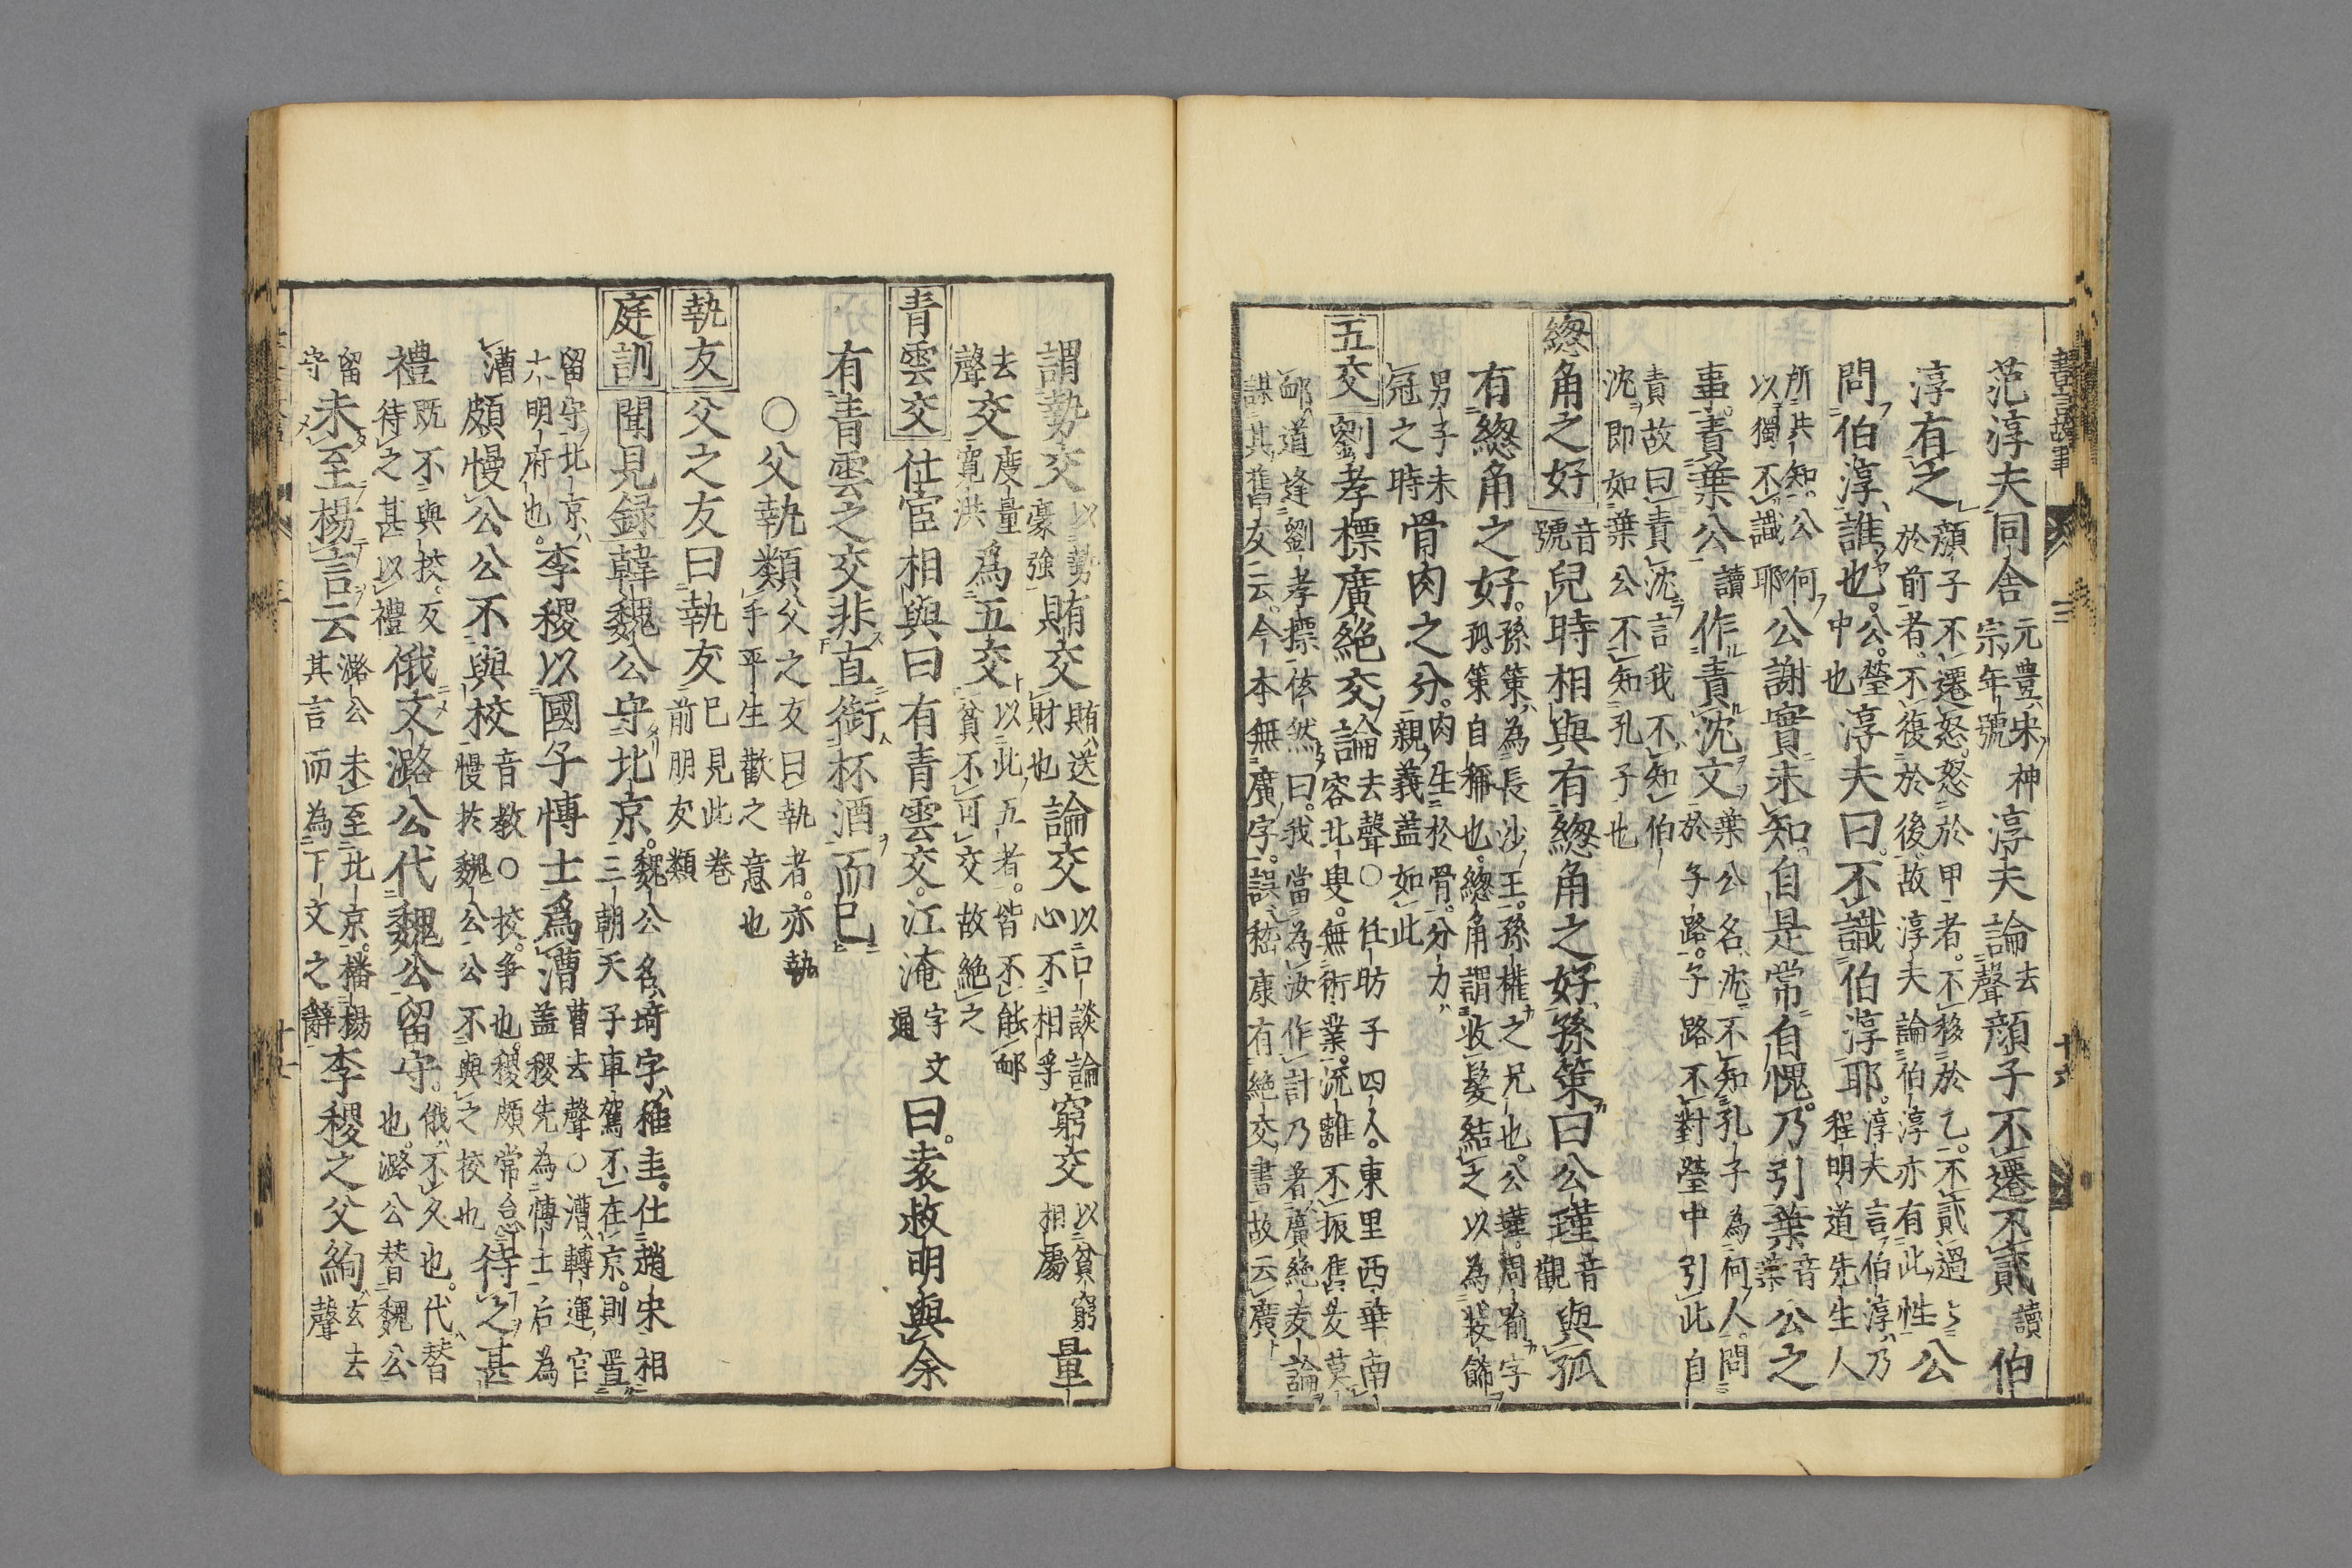 范淳夫同舍元豊宋神宗年號淳夫論去聲顏子不遷不貳讀伯
淳有之顏子不遷怒怒於甲者不移於乙不貳過於前者不復於後故淳夫論伯淳亦有此性公
問伯淳誰也公瑩中也淳夫曰不識伯淳耶淳夫言伯淳乃程明道先生人
所共知公何以獨不識耶公謝實未知自是常自愧乃引葉音葉公之
事責葉公讀作責沈文葉公名沈不知孔子為何人問於子路子路不對瑩中引此自
責故曰責沈言我不知伯沈即如葉公不知孔子也
緫角之好音號兒時相與有緫角之好孫策曰公瑾音觀與孤
有緫角之好孫策為長沙王孫權之兄也公瑾周瑜字孤策自稱也緫角謂收髮結之以為裝飾
男子未冠之時骨肉之分肉生於骨分力親義蓋如此
五交劉孝標廣絶交論去聲○任昉子四人東里西華南容北叟無術業流離不振舊友莫
邮道逢劉孝標泫然曰我當為汝作計乃著廣絶交論
謀其舊友云今本無廣字誤嵇康有絶交書故云廣
謂勢交以勢豪強賄交賄送財也論交以口談論心不相孚窮交以貧窮相屬量
去聲交廣量寬洪為五交以此五者皆不能邮貧不可交故絶之
青雲交仕宦相與曰有青雲交江淹字文通曰袁叔明與余
有青雲之交非直銜杯酒而已
○父執類父之友曰執者亦執手平生歡之意也
執友父之友曰執友已見此卷前朋友類
庭訓聞見録韓魏公守北京魏公名琦字稚圭仕趙宋相三朝天子車駕不在京則置
留守北京六明府也李稷以國子博士爲漕曹去聲○漕轉運官蓋稷先為博士后為
漕頗慢公公不與校音教○挍爭也稷頗常怠慢於魏公公不與之挍也待之甚
禮既不與挍反待之甚以禮俄文潞公代魏公留守俄不久也代替也潞公替魏公
留守未至楊言云潞公未至北京播楊其言而為下文之辭李稷之父絢玄去聲